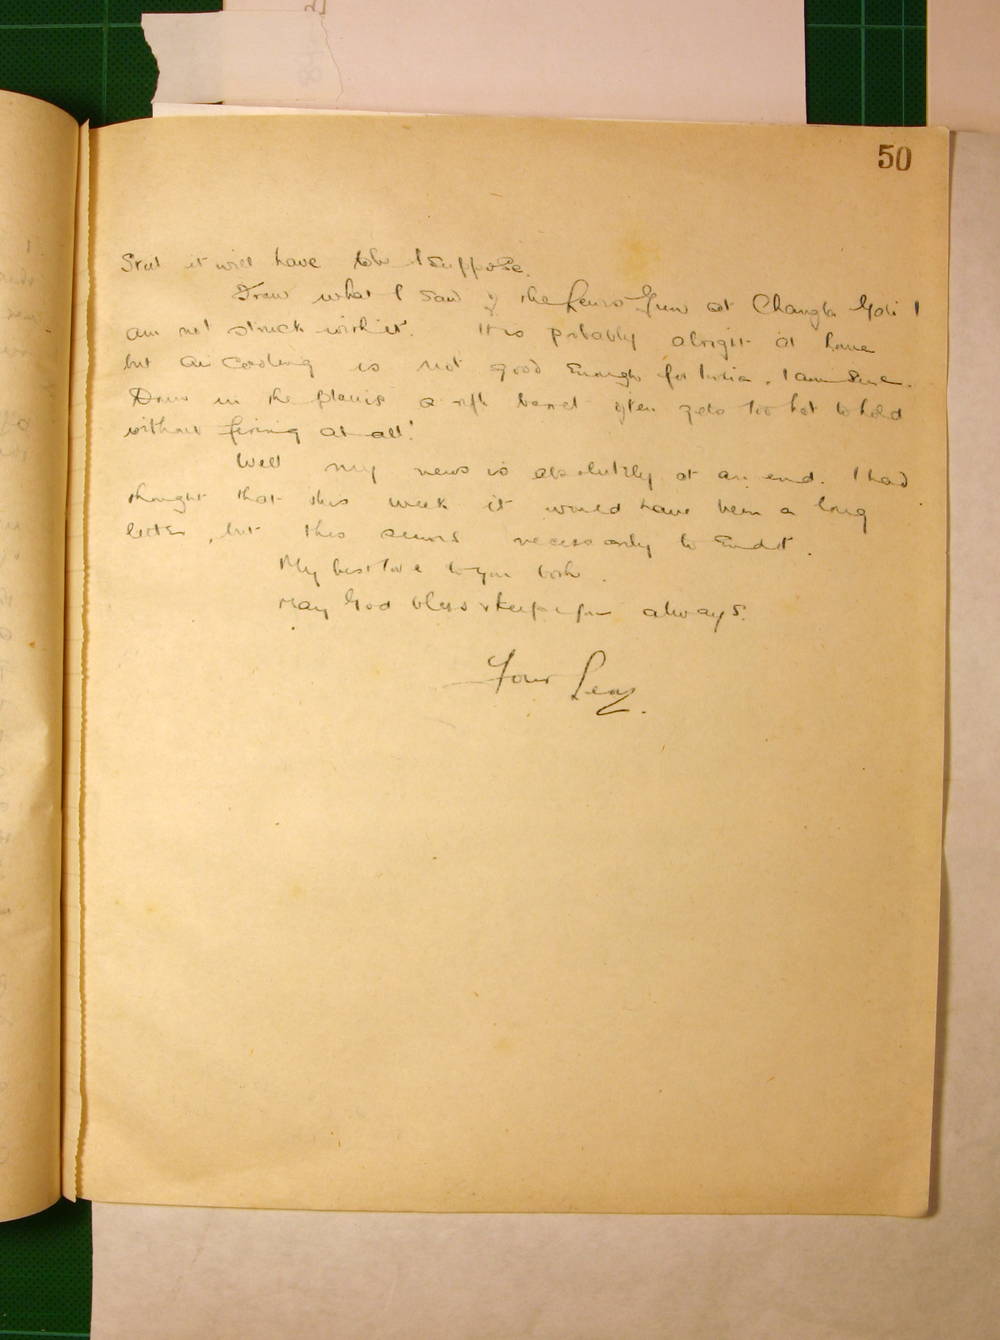 50
Still it will have to be I suppose.
From what I saw of the Lewis Gun at Changla Gali I
am not struck with it. It is probably alright at home
but air cooling is not good enough for India, I am sure.
Down in the plains a rifle barrel often gets too hot to hold
without firing at all!
Well my news is absolutely at an end. I had
thought that this week it would have been a long
letter, but this seems necessary to end it.
My best love to you both.
May God bless & keep you always.
Your